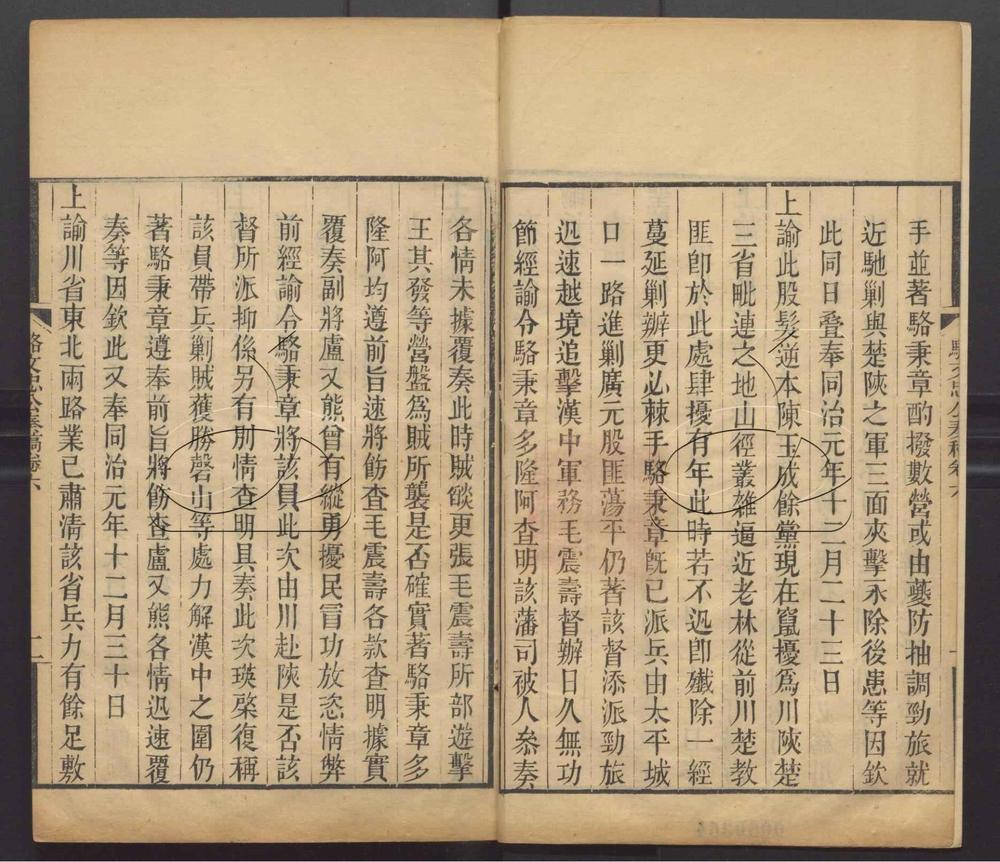 手並著駱秉章酌撥數營或由夔防抽調勁旅就
近馳剿與楚陝之軍三面夾擊永除後患等因欽
此同日叠奉同治元年十二月二十三日
上諭此股髮逆本陳玉成餘黨現在竄擾爲川陝楚
三省毗連之地山徑叢雜逼近老林從前川楚教
匪卽於此處肆擾有年此時若不迅卽殲除一經
蔓延剿辦更必棘手駱秉章旣已派兵由太平城
口一路進剿廣元股匪蕩平仍著該督添派勁旅
迅速越境追擊漢中軍務毛震壽督辦日久無功
節經諭令駱秉章多隆阿查明該藩司被人叅奏
各情未據覆奏此時賊燄更張毛震壽所部遊擊
王其發等營盤爲賊所襲是否確實著駱秉章多
隆阿均遵前旨速將飭查毛震壽各款查明據實
覆奏副將盧又熊曾有縱勇擾民冒功放恣情弊
前經諭令駱秉章將該員此次由川赴陝是否該
督所派抑係另有別情查明具奏此次瑛棨復稱
該員帶兵剿賊獲勝磬山等處力解漢中之圍仍
著駱秉章遵奉前旨將飭查盧又熊各情迅速覆
奏等因欽此又奉同治元年十二月三十日
上諭川省東北兩路業已肅淸該省兵力有餘足敷
駱文忠公奏稿卷六
二